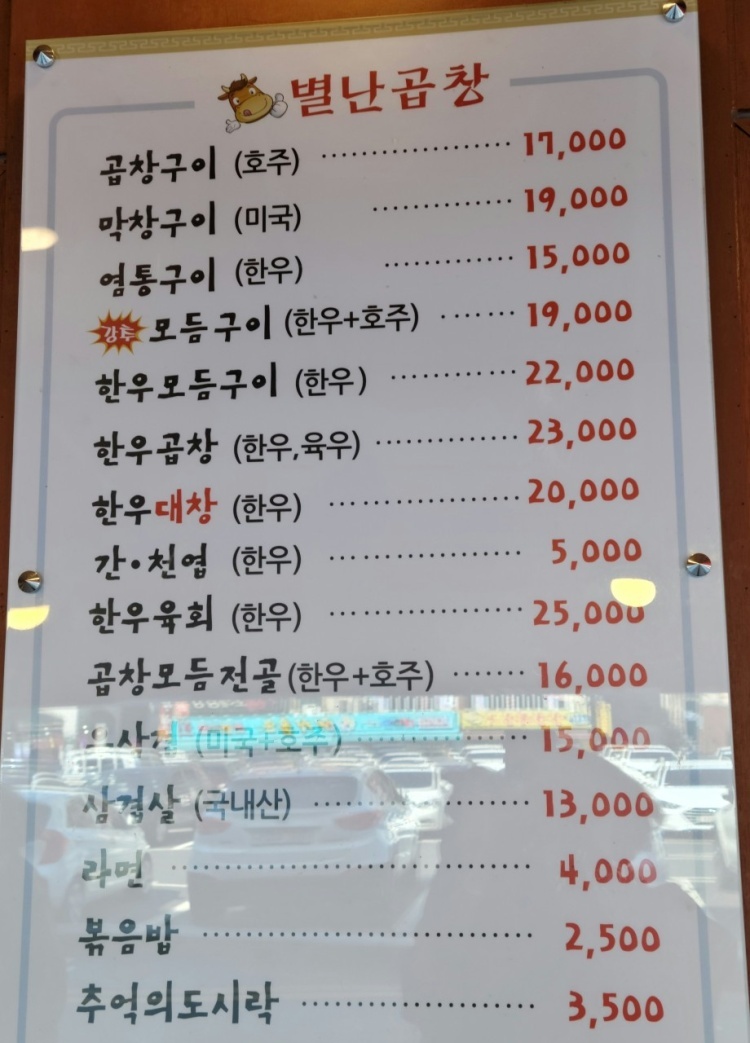 별난곱창
곱창구이 (호주) 17,000
막창구이 (미국) 19,000
염통구이 (한우) 15,000
강추 모듬구이 (한우+호주) 19,000
한우모듬구이 (한우) 22,000
한우곱창 (한우,육우) 23,000
한우대창 (한우) 20,000
간·천엽 (한우) 5,000
한우육회 (한우) 25,000
곱창모듬전골 (한우+호주) 16,000
(미국+호주) 15,000
삼겹살 (국내산) 13,000
라면 4,000
볶음밥 2,500
추억의도시락 3,500